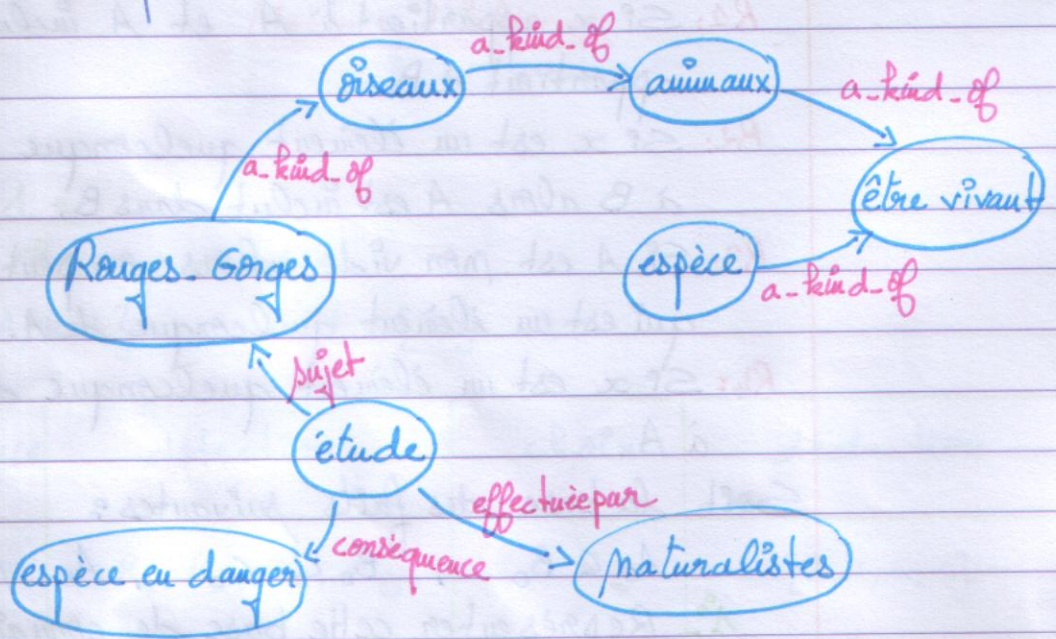 a-kind-of
oiseaux
animaux
a-kind-of
a-kind-of
être vivant
Rouges-Gorges
espèce
a-kind-of
sujet
étude
effectuée par
conséquence
espèce en danger
naturalistes